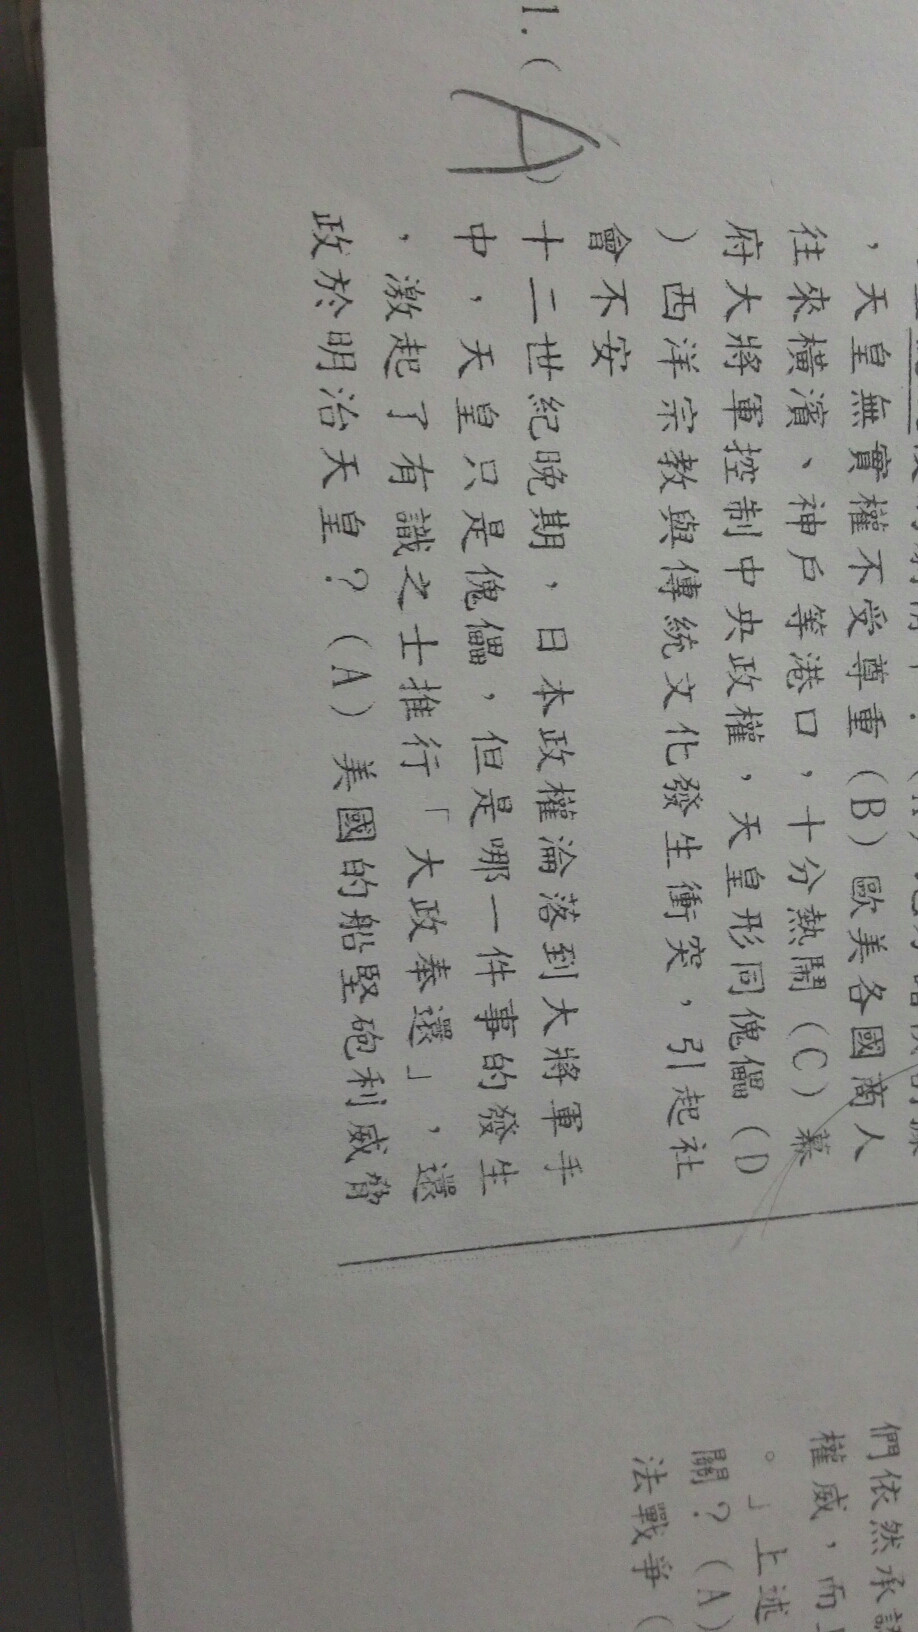 ，天皇無實權不受尊重(B)歐美各國商人
往來橫濱、神戶等港口，十分熱鬧(C)幕
府大將軍控制中央政權，天皇形同傀儡(D
)西洋宗教與傳統文化發生衝突，引起社
會不安
1.(A)十二世紀晚期，日本政權淪落到大將軍手
中，天皇只是傀儡，但是哪一件事的發生
，激起了有識之士推行「大政奉還」，還
政於明治天皇？(A)美國的船堅砲利威脅
們依然承認
權威，而
。」上述
關？(A)
法戰爭(